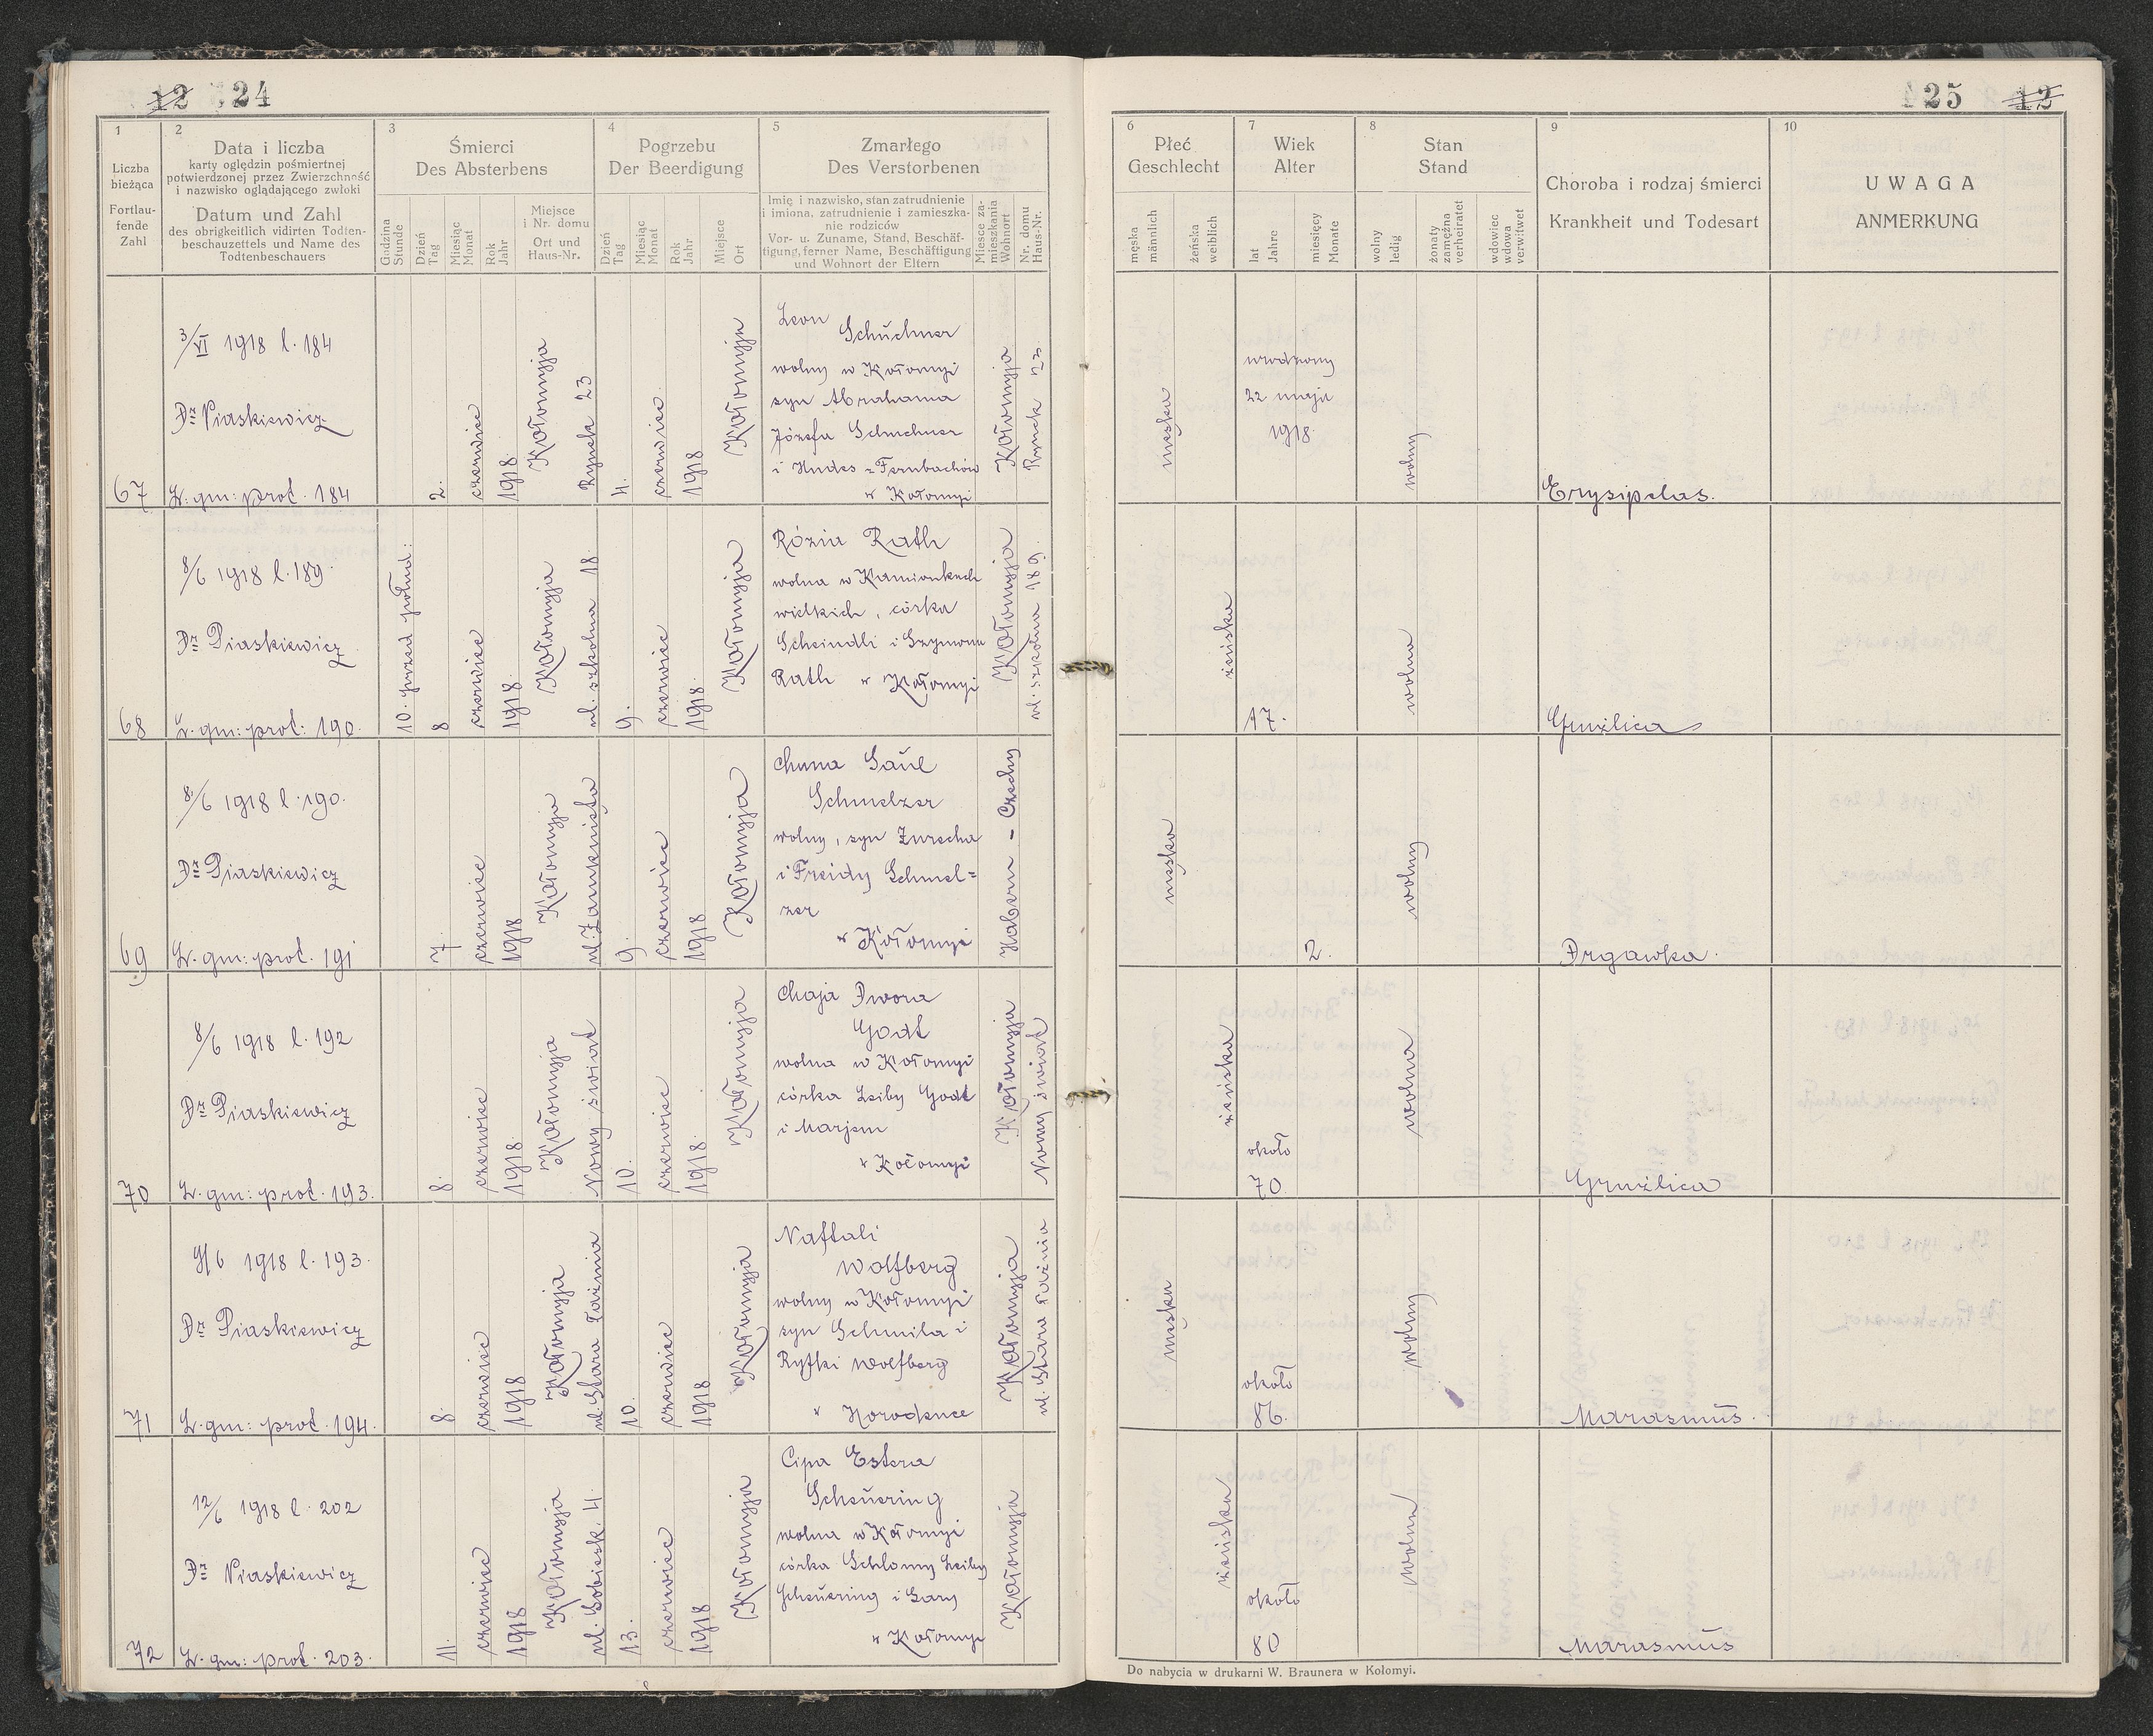 12 24
25 12
1
Liczba
bieżąca
Fortlau-
fende
Zahl
2
Data i liczba
karty oględzin pośmiertnej
potwierdzonej przez Zwierzchność
i nazwisko oglądającego zwłoki
Datum und Zahl
des obrigkeitlich vidirten Todten-
beschauzettels und Name des
Todtenbeschauers
3
Śmierci
Des Absterbens
Godzina
Stunde
Dzień
Tag
Miesiąc
Monat
Rok
Jahr
Miejsce
i Nr. domu
Ort und
Haus-Nr.
4
Pogrzebu
Der Beerdigung
Dzień
Tag
Miesiąc
Monat
Rok
Jahr
Miejsce
Ort
5
Zmarłego
Des Verstorbenen
Imię i nazwisko, stan zatrudnienie
i imiona, zatrudnienie i zamieszka-
nie rodziców
Vor- u. Zuname, Stand, Beschäf-
tigung, ferner Name, Beschäftigung
und Wohnort der Eltern
Miesce za-
mieszkania
Wohnort
Nr. domu
Haus-Nr.
6
Płeć
Geschlecht
męska
männlich
żeńska
weiblich
7
Wiek
Alter
lat
Jahre
miesięcy
Monate
8
Stan
Stand
wolny
ledig
żonaty
zamężna
verheiratet
wdowiec
wdowa
verwitwet
9
Choroba i rodzaj śmierci
Krankheit und Todesart
10
UWAGA
ANMERKUNG
67
3/VI 1918 l. 184
Dr Piaskiewicz
L. gm: prot. 184
2.
czerwiec
1918.
Kołomyja
Rynek 23
4.
czerwiec
1918
Kołomyja
Leon
Schüchner
wolny w Kołomyi
syn Abrahama
Józefa Schuchner
i Hudes z Fernbachów
w Kołomyi
Kołomyja
Rynek 23
męska
urodzony
22 maja
1918.
wolny
Erysipelas.
68
8/6 1918 l. 189.
Dr Piaskiewicz
L. gm: prot: 190.
10. przed połud:
8
czerwiec
1918.
Kołomyja
ul. szkolna 18
9.
czerwiec
1918.
Kołomyja
Rózia Rath
wolna w Kamionkach
wielkich, córka
Scheindli i Szymona
Rath w Kołomyi
Kołomyja
ul. szkolna 189.
żeńska
17.
wolna
Gruźlica
69
8/6 1918 l. 190.
Dr Piaskiewicz
L. gm: prot. 191
7.
czerwiec
1918
Kołomyja
ul. Zamknięta
9.
czerwiec
1918
Kołomyja
Chuna Saul
Schmelzer
wolny, syn Zurecha
i Freidy Schmel=
zer
w Kołomyi
Habern - Czechy
męska
2.
wolny
Drgawka.
70
8/6 1918 l. 192
Dr Piaskiewicz
L. gm: prot. 193.
8.
czerwiec
1918.
Kołomyja
Nowy świat
10.
czerwiec
1918.
Kołomyja
Chaja Dwora
Godt
wolna w Kołomyi
córka Leiby Godt
i Marjem
w Kołomyi
Kołomyja
Nowy świat
żeńska
około
70.
wolna
Gruźlica
71
9/6 1918 l. 193.
Dr Piaskiewicz
L. gm: prot. 194.
8.
czerwiec
1918
Kołomyja
ul. Stara Łaźnia
10.
czerwiec
1918
Kołomyja
Naftali
Wolfberg
wolny w Kołomyi
syn Schmila i
Ryfki Wolfberg
w Horodence
Kołomyja
ul. Stara Łaźnia
męska
około
86.
wolny
Marasmus.
72
12/6 1918 l. 202
Dr Piaskiewicz
L. gm: prot. 203.
11.
czerwiec
1918
Kołomyja
ul. Sobiesk. 4.
13.
czerwiec
1918
Kołomyja
Cipa Estera
Scheuering
wolna w Kołomyi
córka Schlomy Leiby
Scheuering i Sary
w Kołomyi
Kołomyja
żeńska
około
80
wolna
Marasmus
Do nabycia w drukarni W. Braunera w Kołomyi.